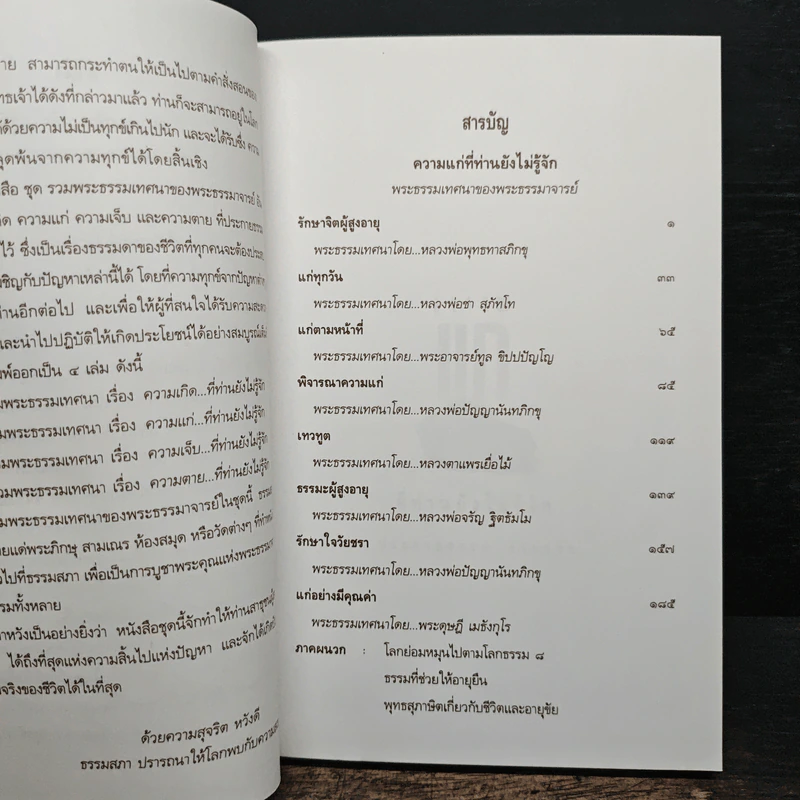 าย สามารถกระทำตนให้เป็นไปตามคำสั่งสอนของ
ทธเจ้าได้ดังที่กล่าวมาแล้ว ท่านก็จะสามารถอยู่ในโลก
ด้ด้วยความไม่เป็นทุกข์เกินไปนัก และจะได้รับซึ่ง ความ
ลุดพ้นจากความทุกข์ได้โดยสิ้นเชิง
สือ ชุด รวมพระธรรมเทศนาของพระธรรมาจารย์
ิด ความแก่ ความเจ็บ และความตาย ที่ประกาย
ไว้ ซึ่งเป็นเรื่องธรรมดาของชีวิตที่ทุกคนจะต้องประสบ
ชิญกับปัญหาเหล่านี้ได้ โดยที่ความทุกข์จากปัญหา
านอีกต่อไป และเพื่อให้ผู้ที่สนใจได้รับความสะดวก
ละนำไปปฏิบัติให้เกิดประโยชน์ได้อย่างสมบูรณ์
พ์ออกเป็น ๔ เล่ม ดังนี้
มพระธรรมเทศนา เรื่อง ความเกิด...ที่ท่านยังไม่รู้จัก
มพระธรรมเทศนา เรื่อง ความแก่...ที่ท่านยังไม่รู้จัก
มพระธรรมเทศนา เรื่อง ความเจ็บ...ที่ท่านยังไม่รู้จัก
วมพระธรรมเทศนา เรื่อง ความตาย...ที่ท่านยังไม่รู้จัก
มพระธรรมเทศนาของพระธรรมาจารย์ในชุดนี้
ายแด่พระภิกษุ สามเณร ห้องสมุด หรือวัดต่างๆ
วไปที่ธรรมสภา เพื่อเป็นการบูชาพระคุณแห่งพระธรรมา
รมทั้งหลาย
าหวังเป็นอย่างยิ่งว่า หนังสือชุดนี้จักทำให้ท่านสาธุชน
ได้ถึงที่สุดแห่งความสิ้นไปแห่งปัญหา และจักได้
จริงของชีวิตได้ในที่สุด
ด้วยความสุจริต หวังดี
ธรรมสภา ปรารถนาให้โลกพบกับความ
สารบัญ
ความแก่ที่ท่านยังไม่รู้จัก
พระธรรมเทศนาของพระธรรมาจารย์
รักษาจิตผู้สูงอายุ ๑
พระธรรมเทศนาโดย...หลวงพ่อพุทธทาสภิกขุ
แก่ทุกวัน ๓๓
พระธรรมเทศนาโดย...หลวงพ่อชา สุภัทโท
แก่ตามหน้าที่ ๖๕
พระธรรมเทศนาโดย...พระอาจารย์ทูล ขิปปปัญโญ
พิจารณาความแก่ ๘๕
พระธรรมเทศนาโดย...หลวงพ่อปัญญานันทภิกขุ
เทวทูต ๑๑๙
พระธรรมเทศนาโดย...หลวงตาแพรเยื่อไม้
ธรรมะผู้สูงอายุ ๑๓๙
พระธรรมเทศนาโดย...หลวงพ่อจรัญ ฐิตธัมโม
รักษาใจวัยชรา ๑๕๗
พระธรรมเทศนาโดย...หลวงพ่อปัญญานันทภิกขุ
แก่อย่างมีคุณค่า ๑๘๕
พระธรรมเทศนาโดย...พระดุษฎี เมธังกุโร
ภาคผนวก : โลกย่อมหมุนไปตามโลกธรรม ๘
ธรรมที่ช่วยให้อายุยืน
พุทธสุภาษิตเกี่ยวกับชีวิตและอายุขัย